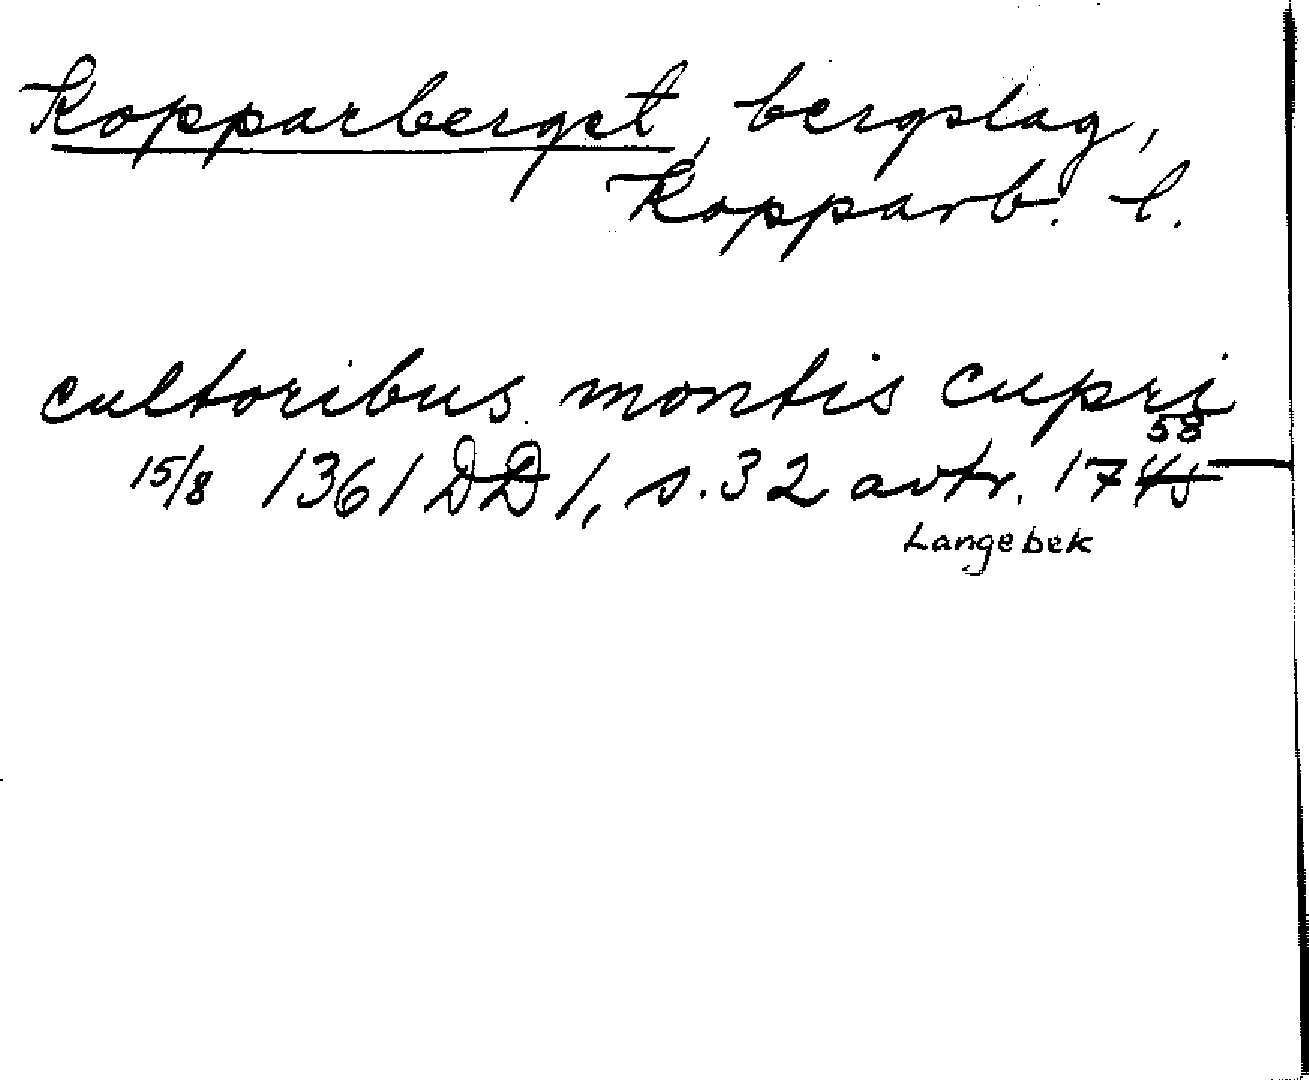 Kopparberget, bergslag,
Kopparb. l.
cultoribus montis cupri
58
15/8 1361 DD 1, s. 32 avtr. 1745
Langebek